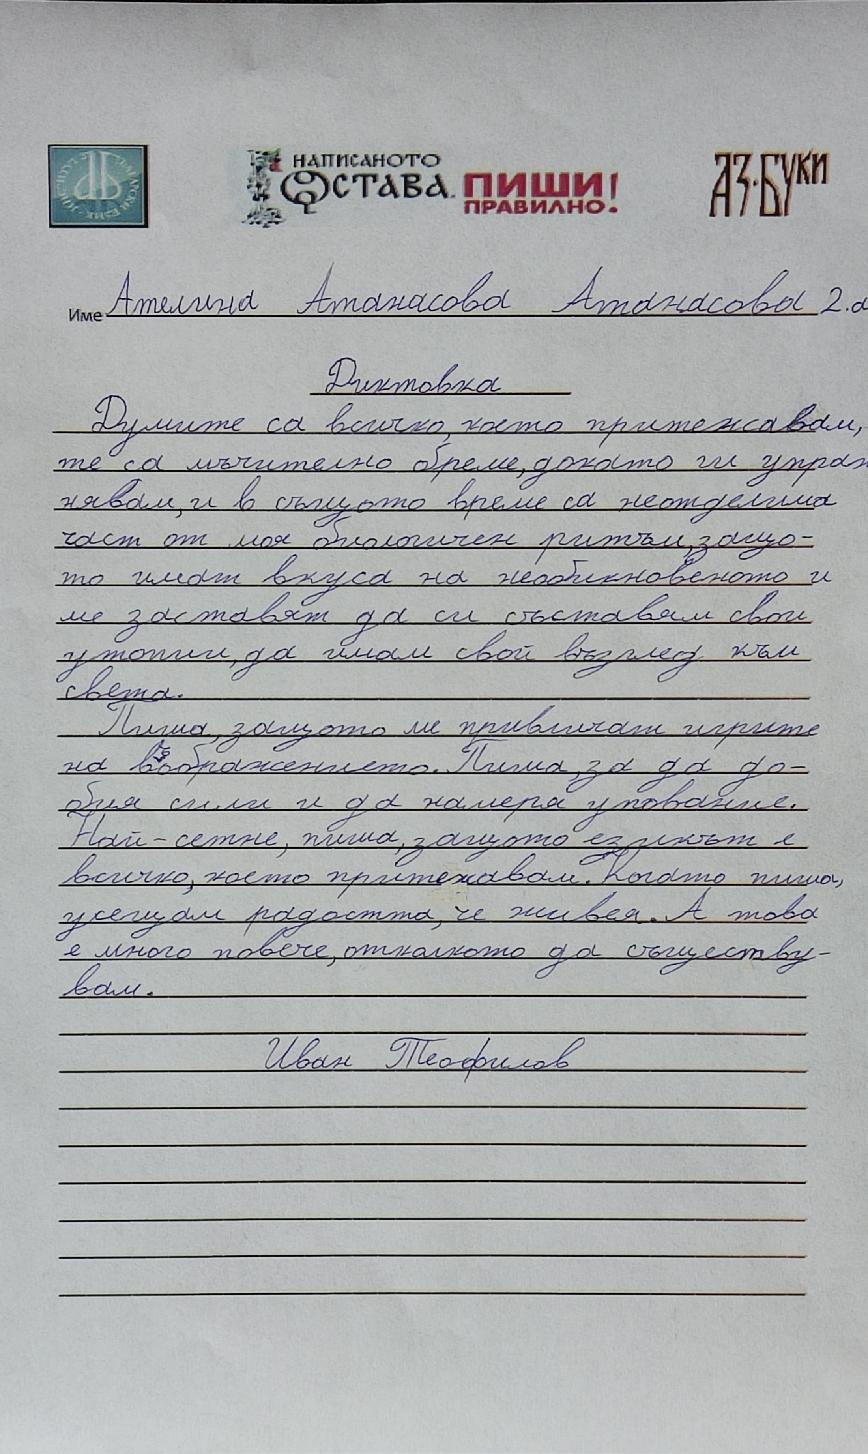 НАПИСАНОТО
ОСТАВА. ПИШИ!
ПРАВИЛНО!
АЗ·БУКИ
Име Ателина Атанасова Атанасова 2.а
Диктовка
Думите са всичко, което притежавам,
те са мъчително бреме, докато ги упраж
нявам, и в същото време са неотделима
част от моя биологичен ритъм, защо-
то имат вкуса на необикновеното и
ме заставят да си съставям свои
утопии, да имам свой възглед към
света.
Пиша, защото ме привличат игрите
на въображението. Пиша, за да до-
бия сили и да намеря упование.
Най-сетне, пиша, защото езикът е
всичко, което притежавам. Когато пиша,
усещам радостта, че живея. А това
е много повече, отколкото да съществу-
вам.
Иван Теофилов